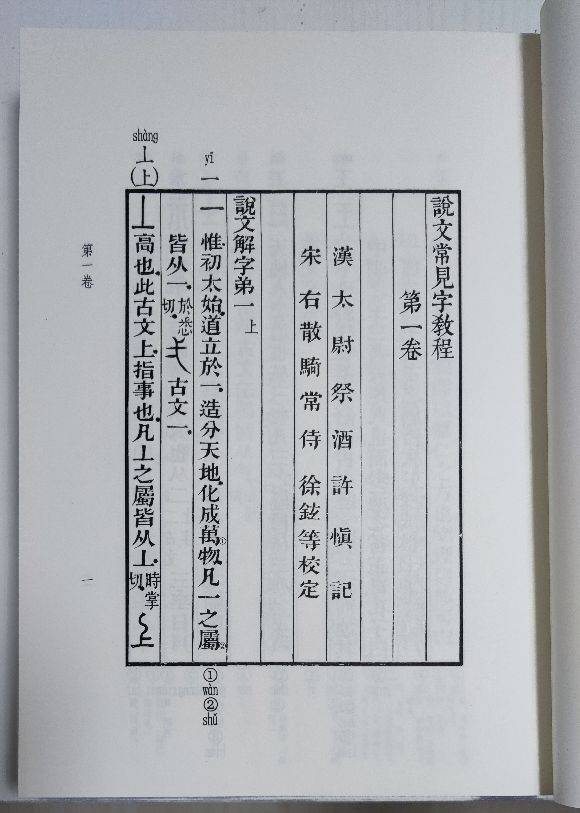 說文常見字教程
第一卷
漢太尉祭酒許愼記
宋右散騎常侍徐鉉等校定
說文解字弟一上
yī
一
一惟初太始道立於一造分天地化成萬①物凡一之屬②
①wàn②shǔ
皆从一於悉切古文一
shàng
丄
(上)
丄高也此古文上指事也凡丄之屬皆从丄時掌切
第一卷
一